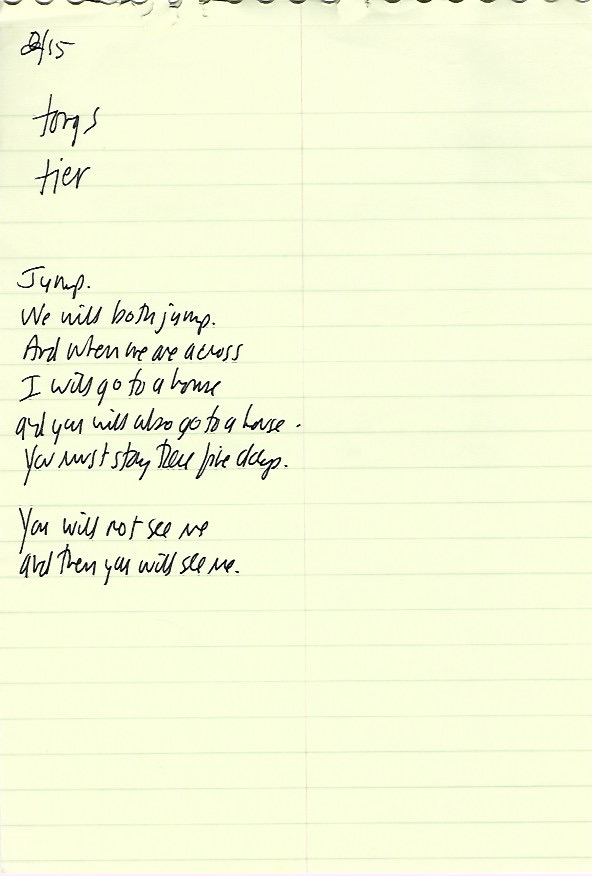 2/15
torqs
tier
Jump.
We will both jump.
And when we are across
I will go to a house
and you will also go to a house.
You must stay there five days.
You will not see me
and then you will see me.